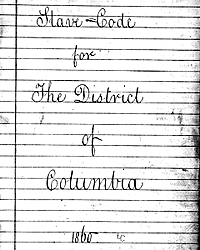 Slave=Code
for
The District
of
Columbia
1860